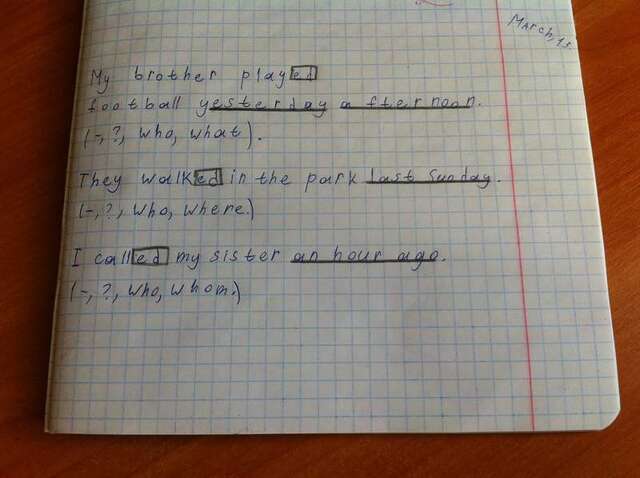 My brother played
football yesterday afternoon.
(-, ?, who, what).
They walked in the park last Sunday.
(-, ?, who, where.)
I called my sister an hour ago.
(-, ?, who, whom.)